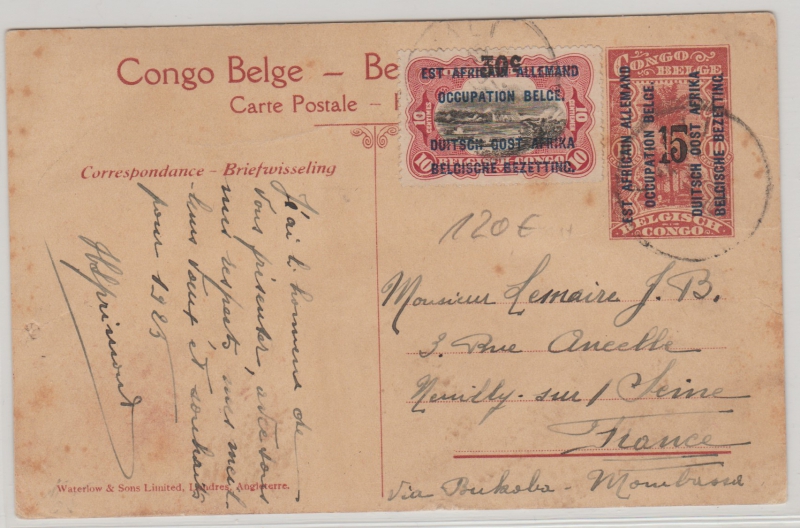 Congo Belge – Be
Carte Postale –
30c
EST AFRICAIN ALLEMAND
OCCUPATION BELGE.
DUITSCH OOST AFRIKA
BELGISCHE BEZETTING.
10 CENTIMES
10
10
BELGISCH CONGO
CONGO
BELGE
EST AFRICAIN ALLEMAND
OCCUPATION BELGE.
15
DUITSCH OOST AFRIKA
BELGISCHE BEZETTING.
BELGISCH
CONGO
Correspondance – Briefwisseling
J'ai l'honneur de
vous présenter, avec tous
mes respects, mes meil-
leurs vœux et souhaits
pour 1925
120€
Monsieur Lemaire J. B.
3, Rue Ancelle
Neuilly-sur/Seine
France
via Bukoba - Mombassa
Waterlow & Sons Limited, Londres, Angleterre.